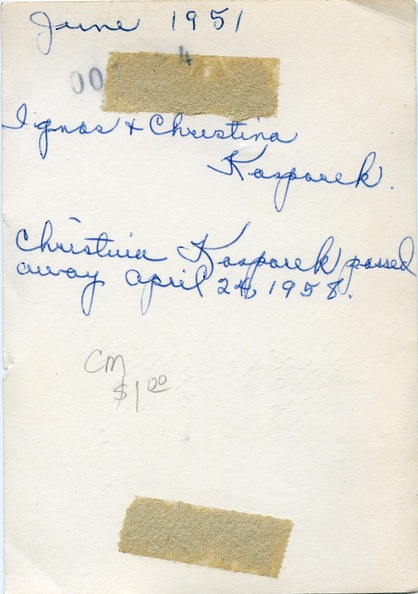 June 1951
00 4
Ignas + Christina
Kasparek.
Christina Kasparek passed
away April 24, 1958.
CM
$1.00